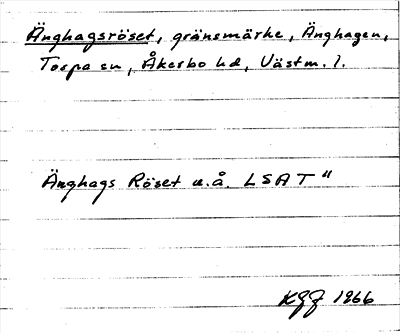 Änghagsröset, gränsmärke, Änghagen,
Torpa sn, Åkerbo hd, Västm. l.
Änghags Röset u.å. LSA T"
KGJ 1966